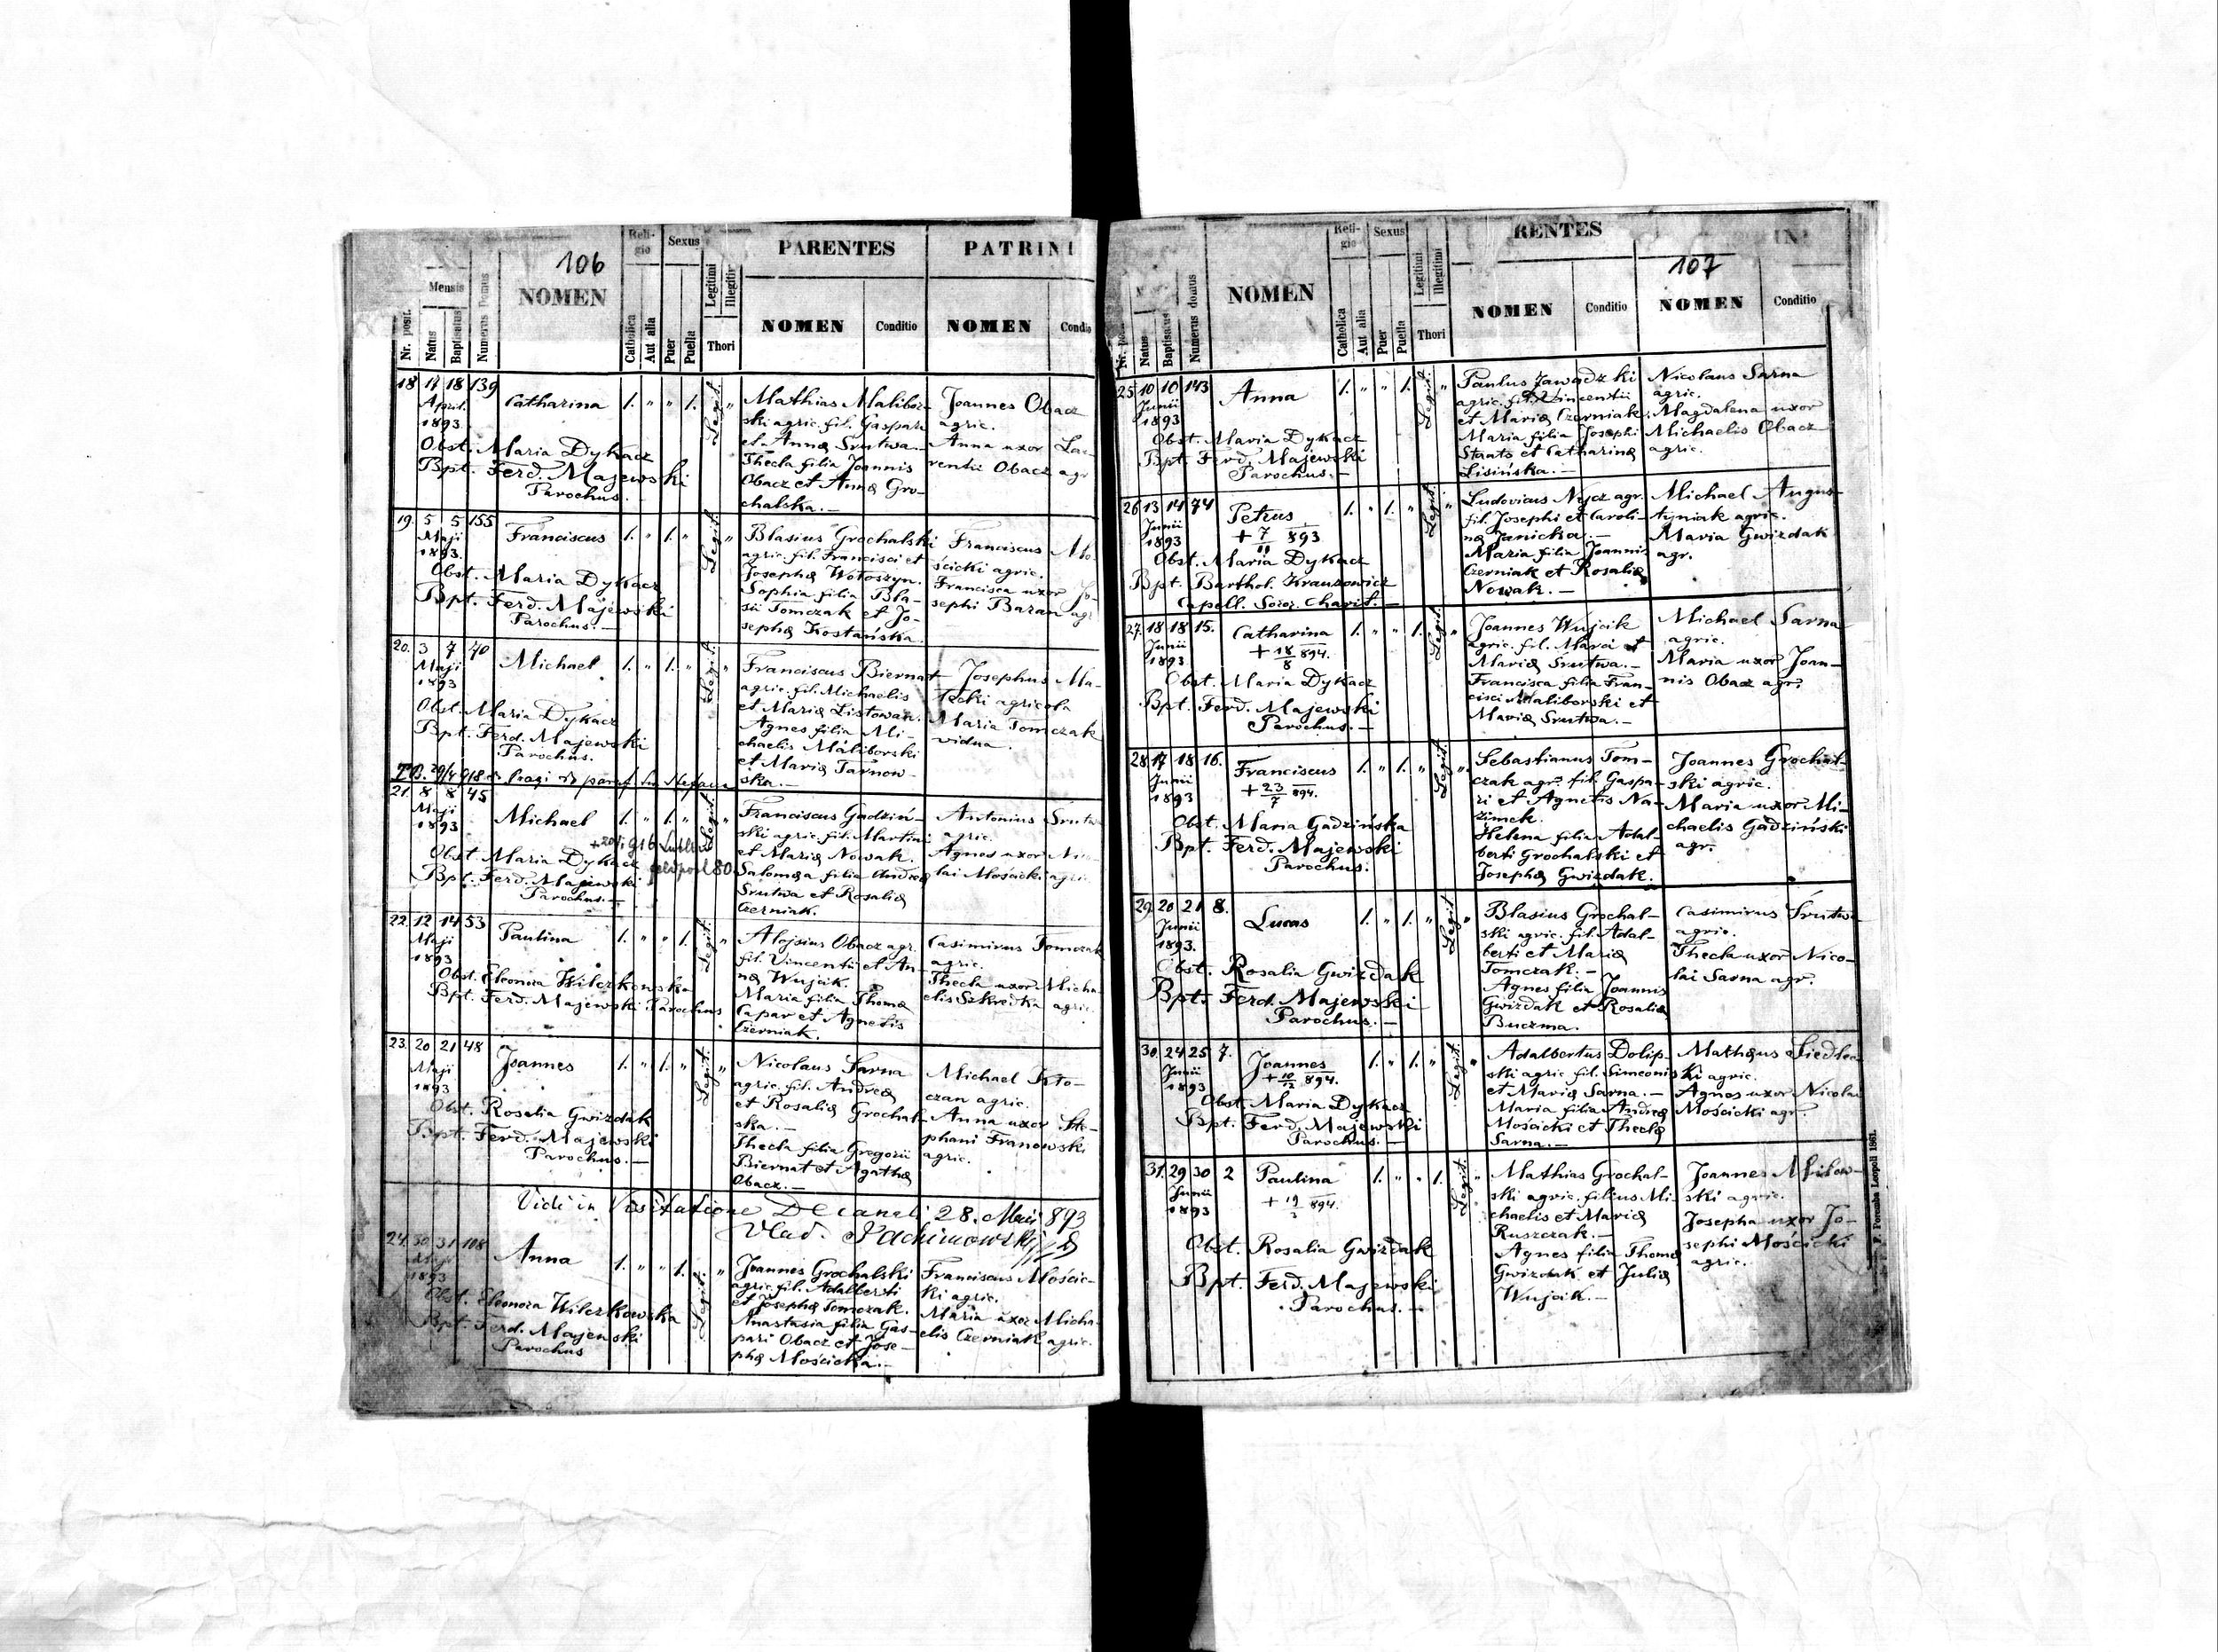 106
Mensis
Nr. posit.
Natus
Baptisatus
Numerus Domus
NOMEN
Religio
Catholica
Aut alia
Sexus
Puer
Puella
Legitimi
Illegitimi
Thori
PARENTES
NOMEN
Conditio
PATRINI
NOMEN
Condi
18 17 18 139
April.
1893.
Catharina 1. " " 1. Legit. "
Obst. Maria Dykacz
Bpt. Ferd. Majewski
Parochus.—
Mathias Malibor-
ski agric. fil. Gaspari
et Annæ Srutwa.—
Thecla filia Joannis
Obacz et Annæ Gro-
chalska.—
Joannes Obacz
agric.
Anna uxor Lau-
rentii Obacz agr
19. 5 5 155
Maji
1893.
Franciscus 1. " 1. " Legit. "
Obst. Maria Dykacz
Bpt. Ferd. Majewski
Parochus.—
Blasius Grochalski
agric. fil. Francisci et
Josephæ Wołoszyn.
Sophia filia Bla-
sii Tomczak et Jo-
sephæ Kostańska.
Franciscus Mo-
ścicki agric.
Francisca uxor Jo-
sephi Baran agr
20. 3 7 40
Maji
1893
Michael 1. " 1. " Legit. "
Obst. Maria Dykacz
Bpt. Ferd. Majewski
Parochus.
Franciscus Biernat
agric. fil. Michaelis
et Mariæ Listowan.
Agnes filia Mi-
chaelis Maliborski
et Mariæ Tarnow-
ska.—
Josephus Ma-
łecki agricola
Maria Tomczak
vidua.
21. 8 8 45
Maji
1893
Michael 1. " 1. " Legit. "
Obst. Maria Dykacz
Bpt. Ferd. Majewski
Parochus.—
Franciscus Gadziń-
ski agric. fil. Martini
et Mariæ Nowak.
Salomea filia Andreæ
Srutwa et Rosaliæ
Czerniak.
Antonius Srutw
agric.
Agnes uxor Nico-
lai Mościcki agric.
22. 12 14 53
Maji
1893
Paulina 1. " " 1. Legit. "
Obst. Eleonora Wilczkowska
Bpt. Ferd. Majewski Parochus
Alojsius Obacz agr.
fil. Vincentii et An-
næ Wujcik.
Maria filia Thomæ
Capar et Agnetis
Czerniak.
Casimirus Tomczak
agric.
Thecla uxor Micha-
elis Szkredka agric.
23. 20 21 48
Maji
1893
Joannes 1. " 1. " Legit. "
Obst. Rosalia Gwizdak
Bpt. Ferd. Majewski
Parochus.—
Nicolaus Sarna
agric. fil. Andreæ
et Rosaliæ Grochal-
ska.—
Thecla filia Gregorii
Biernat et Agathæ
Obacz.—
Michael Kto-
czan agric.
Anna uxor Ste-
phani Franowski
agric.
Vidi in Visitatione Decanali 28. Maii 893
24. 30 31 108
Maji
1893
Anna 1. " " 1. Legit. "
Obst. Eleonora Wilczkowska
Bpt. Ferd. Majewski
Parochus
Joannes Grochalski
agric. fil. Adalberti
et Josephæ Tomczak.
Anastasia filia Gas-
pari Obacz et Jose-
phæ Mościcka.—
Franciscus Mościc-
ki agric.
Maria uxor Micha-
elis Czerniak agric.
107
Natus
Baptisatus
Numerus domus
NOMEN
Religio
Catholica
Aut alia
Sexus
Puer
Puella
Legitimi
Illegitimi
Thori
RENTES
NOMEN
Conditio
NOMEN
Conditio
25 10 10 143
Junii
1893
Anna 1. " " 1. Legit. "
Obst. Maria Dykacz
Bpt. Ferd. Majewski
Parochus.—
Paulus Zawadzki
agric. fil. Vincentii
et Mariæ Czerniak.
Maria filia Josephi
Staats et Catharinæ
Lisińska.—
Nicolaus Sarna
agric.
Magdalena uxor
Michaelis Obacz
agric.
26 13 14 74
Junii
1893
Petrus 1. " 1. " Legit. "
+ 7/11 893
Obst. Maria Dykacz
Bpt. Barthol. Krauzowicz
Capell. Soror. Charit.—
Ludovicus Nycz agr.
fil. Josephi et Caroli-
næ Janicka.—
Maria filia Joannis
Czerniak et Rosaliæ
Nowak.—
Michael Augus-
tyniak agric.
Maria Gwizdak
agr.
27. 18 18 15.
Junii
1893
Catharina 1. " " 1. Legit. "
+ 18/8 894.
Obst. Maria Dykacz
Bpt. Ferd. Majewski
Parochus.—
Joannes Wujcik
agric. fil. Marci et
Mariæ Srutwa.—
Francisca filia Fran-
cisci Maliborski et
Mariæ Srutwa.—
Michael Sarna
agric.
Maria uxor Joan-
nis Obacz agr.
28 17 18 16.
Junii
1893
Franciscus 1. " 1. " Legit. "
+ 23/7 894.
Obst. Maria Gadzińska
Bpt. Ferd. Majewski
Parochus.
Sebastianus Tom-
czak agr. fil. Gaspa-
ri et Agnetis Na-
zimek.
Helena filia Adal-
berti Grochalski et
Josephæ Gwizdak.
Joannes Grochal-
ski agric.
Maria uxor Mi-
chaelis Gadziński
agr.
29. 20 21 8.
Junii
1893.
Lucas 1. " 1. " Legit. "
Obst. Rosalia Gwizdak
Bpt. Ferd. Majewski
Parochus.—
Blasius Grochal-
ski agric. fil. Adal-
berti et Mariæ
Tomczak.—
Agnes filia Joannis
Gwizdak et Rosaliæ
Buczma.
Casimirus Srutwa
agric.
Thecla uxor Nico-
lai Sarna agr.
30. 24 25 7.
Junii
1893
Joannes 1. " 1. " Legit. "
+ 10/12 894.
Obst. Maria Dykacz
Bpt. Ferd. Majewski
Parochus.—
Adalbertus Dolip-
ski agric. fil. Simeonis
et Mariæ Sarna.—
Maria filia Andreæ
Mościcki et Theclæ
Sarna.—
Mathæus Siedlec
ki agric.
Agnes uxor Nicolai
Mościcki agr.
31. 29 30 2
Junii
1893
Paulina 1. " " 1. Legit. "
Obst. Rosalia Gwizdak
Bpt. Ferd. Majewski
Parochus.—
Mathias Grochal-
ski agric. filius Mi-
chaelis et Mariæ
Ruszczak.—
Agnes filia Thomæ
Gwizdak et Juliæ
Wujcik.—
ski agric.
Josepha uxor Jo-
sephi Mościcki
agric.
F. Poremba Leopoli 1861.